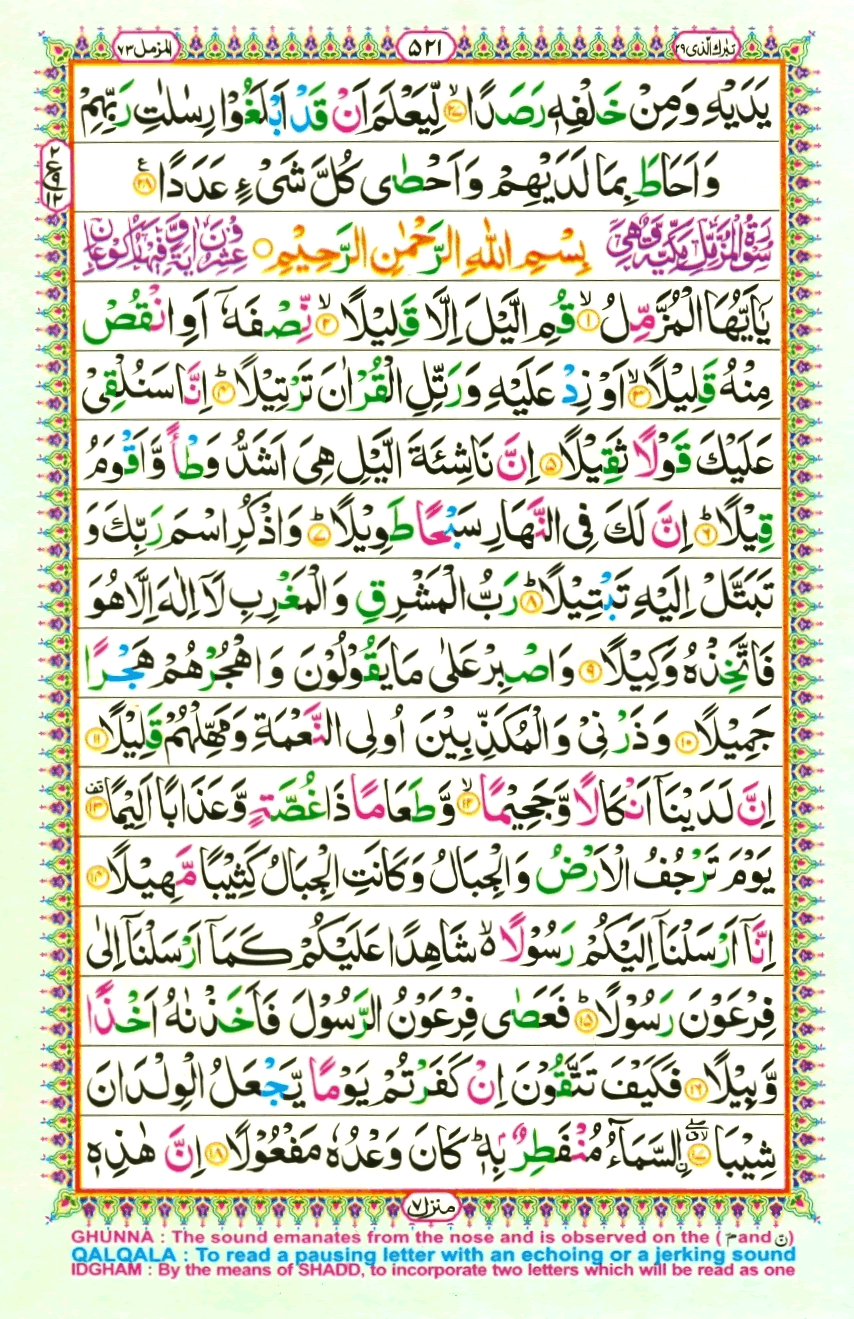 تبٰرك الّذى ٢٩
٥٢١
المزمل ٧٣
يَدَيْهِ وَمِنْ خَلْفِهٖ رَصَدًا ۙ﴿٢٧﴾ لِّيَعْلَمَ اَنْ قَدْ اَبْلَغُوْا رِسٰلٰتِ رَبِّهِمْ
وَاَحَاطَ بِمَا لَدَيْهِمْ وَاَحْصٰى كُلَّ شَىْءٍ عَدَدًا ﴿٢٨﴾ع
٢
ع
١٢
سُوْرَةُ الْمُزَّمِّلِ مَكِّيَّةٌ وَّهِىَ بِسْمِ اللهِ الرَّحْمٰنِ الرَّحِيْمِ عِشْرُوْنَ اٰيَةً وَّفِيْهَا رُكُوْعَانِ
يٰۤاَيُّهَا الْمُزَّمِّلُ ۙ﴿١﴾ قُمِ الَّيْلَ اِلَّا قَلِيْلًا ۙ﴿٢﴾ نِّصْفَهٗۤ اَوِ انْقُصْ
مِنْهُ قَلِيْلًا ۙ﴿٣﴾ اَوْ زِدْ عَلَيْهِ وَرَتِّلِ الْقُرْاٰنَ تَرْتِيْلًا ؕ﴿٤﴾ اِنَّا سَنُلْقِىْ
عَلَيْكَ قَوْلًا ثَقِيْلًا ﴿٥﴾ اِنَّ نَاشِئَةَ الَّيْلِ هِىَ اَشَدُّ وَطْاً وَّاَقْوَمُ
قِيْلًا ؕ﴿٦﴾ اِنَّ لَكَ فِى النَّهَارِ سَبْحًا طَوِيْلًا ؕ﴿٧﴾ وَاذْكُرِ اسْمَ رَبِّكَ وَ
تَبَتَّلْ اِلَيْهِ تَبْتِيْلًا ؕ﴿٨﴾ رَبُّ الْمَشْرِقِ وَالْمَغْرِبِ لَاۤ اِلٰهَ اِلَّا هُوَ
فَاتَّخِذْهُ وَكِيْلًا ﴿٩﴾ وَاصْبِرْ عَلٰى مَا يَقُوْلُوْنَ وَاهْجُرْهُمْ هَجْرًا
جَمِيْلًا ﴿١٠﴾ وَذَرْنِىْ وَالْمُكَذِّبِيْنَ اُولِى النَّعْمَةِ وَمَهِّلْهُمْ قَلِيْلًا ﴿١١﴾
اِنَّ لَدَيْنَاۤ اَنْكَالًا وَّجَحِيْمًا ۙ﴿١٢﴾ وَّطَعَامًا ذَا غُصَّةٍ وَّعَذَابًا اَلِيْمًا ﴿١٣﴾قف
يَوْمَ تَرْجُفُ الْاَرْضُ وَالْجِبَالُ وَكَانَتِ الْجِبَالُ كَثِيْبًا مَّهِيْلًا ﴿١٤﴾
اِنَّاۤ اَرْسَلْنَاۤ اِلَيْكُمْ رَسُوْلًا ۙ۬ شَاهِدًا عَلَيْكُمْ كَمَاۤ اَرْسَلْنَاۤ اِلٰى
فِرْعَوْنَ رَسُوْلًا ؕ﴿١٥﴾ فَعَصٰى فِرْعَوْنُ الرَّسُوْلَ فَاَخَذْنٰهُ اَخْذًا
وَّبِيْلًا ﴿١٦﴾ فَكَيْفَ تَتَّقُوْنَ اِنْ كَفَرْتُمْ يَوْمًا يَّجْعَلُ الْوِلْدَانَ
شِيْبَا ﴿١٧﴾ۖق ۨالسَّمَآءُ مُنْفَطِرٌۢ بِهٖ ؕ كَانَ وَعْدُهٗ مَفْعُوْلًا ﴿١٨﴾ اِنَّ هٰذِهٖ
منزل ٧
GHUNNA : The sound emanates from the nose and is observed on the ( مّ and نّ )
QALQALA : To read a pausing letter with an echoing or a jerking sound
IDGHAM : By the means of SHADD, to incorporate two letters which will be read as one